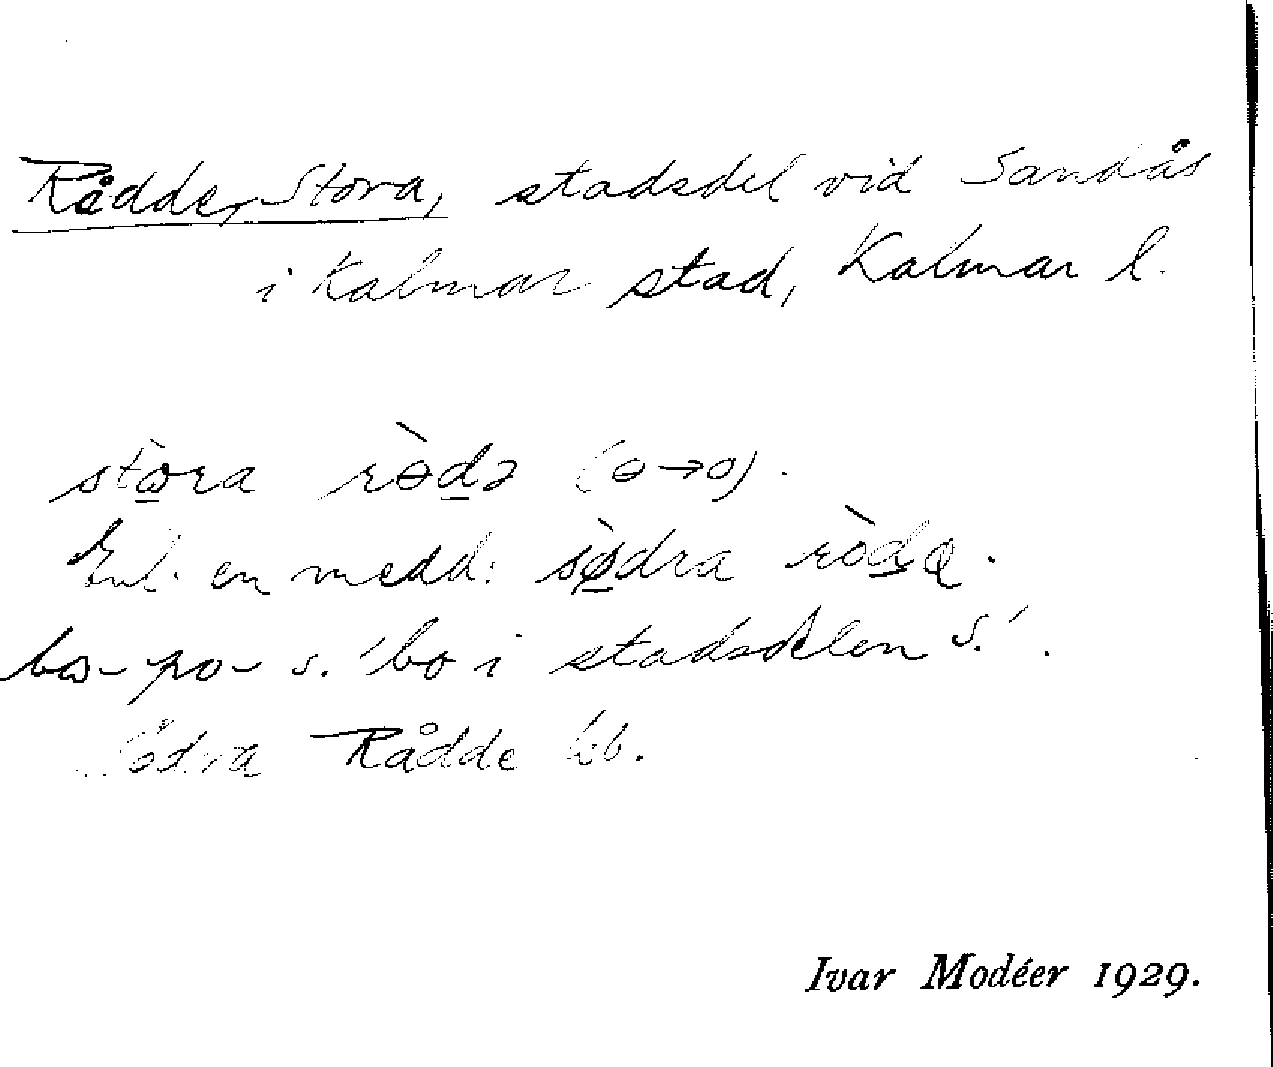 Rådde, Stora, stadsdel vid Sandås
i Kalmar stad, Kalmar l.
stɷ̀ra rɵ̀də (ɵ→o).
Enl. en medd: sø̀dra ròda.
bɷ- po- s. 'bo i stadsdelen s.'.
Södra Rådde kb.
Ivar Modéer 1929.